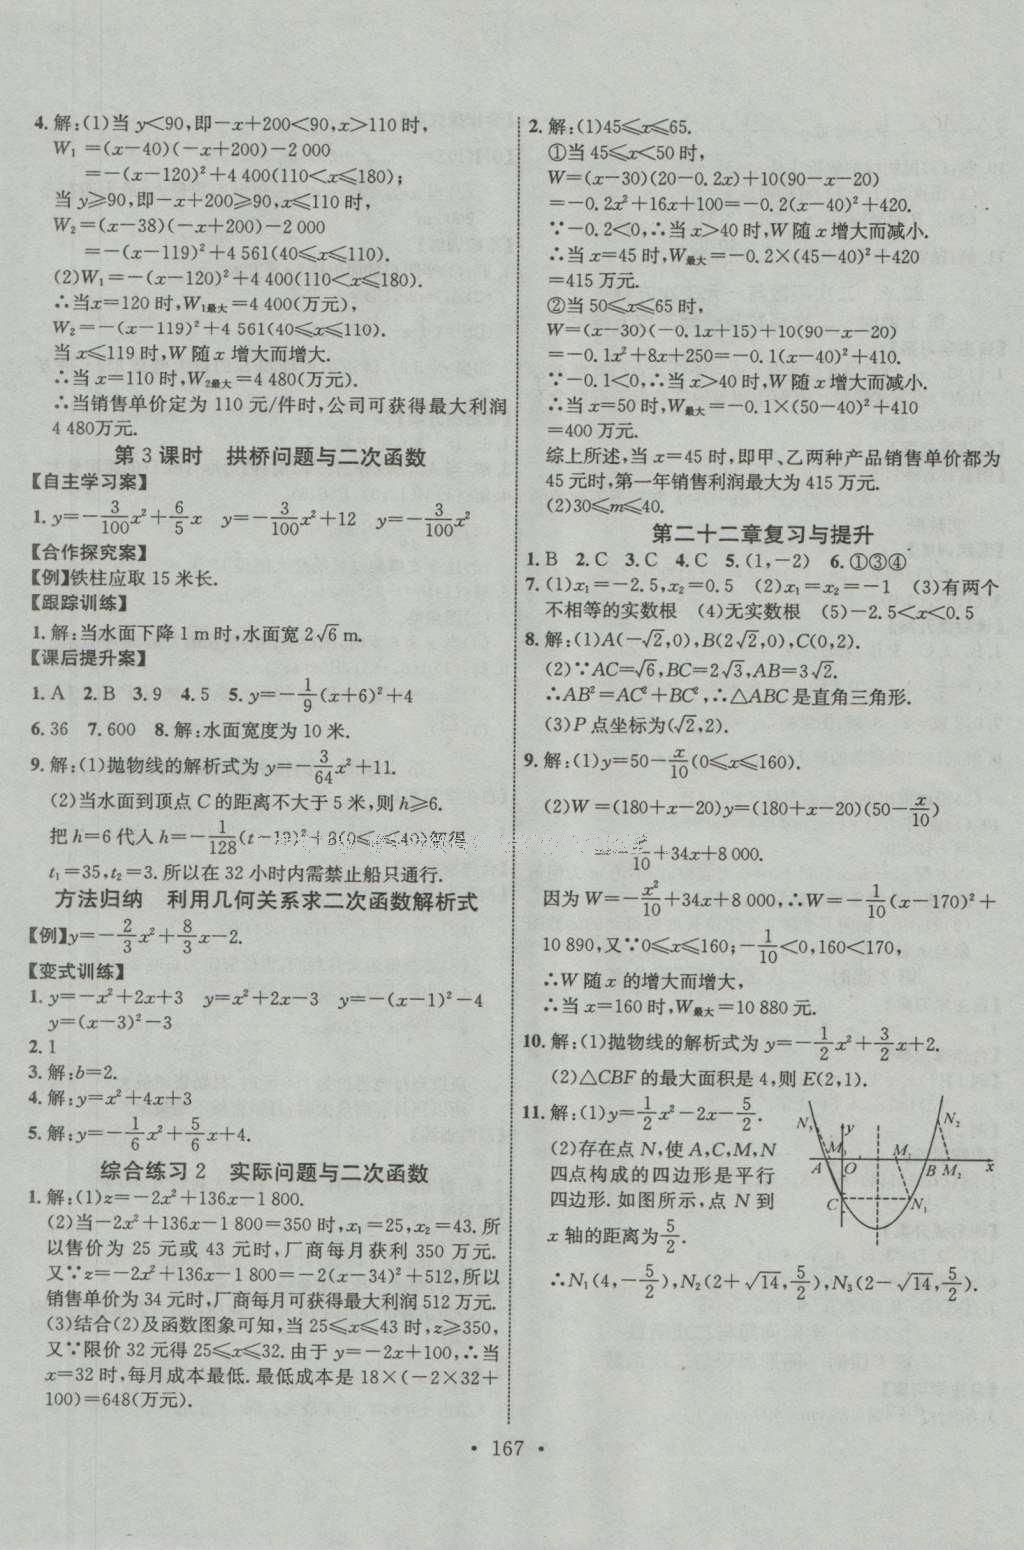 4. 解:(1)当 y<90,即-x+200<90,x>110 时,
W₁ =(x-40)(-x+200)-2 000
=-(x-120)²+4 400(110<x⩽180);
当 y⩾90,即-x+200⩾90,x⩽110 时,
W₂=(x-38)(-x+200)-2 000
=-(x-119)²+4 561(40⩽x⩽110).
(2)W₁=-(x-120)²+4 400(110<x⩽180).
∴当x=120 时,W₁最大=4 400(万元),
W₂=-(x-119)²+4 561(40⩽x⩽110).
当 x⩽119 时,W 随 x 增大而增大.
∴当 x=110 时,W₂最大=4 480(万元).
∴当销售单价定为 110 元/件时,公司可获得最大利润
4 480万元.
第 3 课时 拱桥问题与二次函数
【自主学习案】
1. y=-3/100x²+6/5x y=-3/100x²+12 y=-3/100x²
【合作探究案】
【例】铁柱应取 15 米长.
【跟踪训练】
1. 解:当水面下降 1 m 时,水面宽 2√6 m.
【课后提升案】
1. A 2. B 3. 9 4. 5 5. y=-1/9(x+6)²+4
6. 36 7. 600 8. 解:水面宽度为 10 米.
9. 解:(1)抛物线的解析式为 y=-3/64x²+11.
(2)当水面到顶点 C 的距离不大于 5 米,则 h⩾6.
把 h=6 代入 h=-1/128(t-19)²+8(0⩽t⩽40)解得
t₁=35,t₂=3. 所以在 32 小时内需禁止船只通行.
方法归纳 利用几何关系求二次函数解析式
【例】y=-2/3x²+8/3x-2.
【变式训练】
1. y=-x²+2x+3 y=x²+2x+3 y=-(x-1)²-4
y=(x-3)²-3
2. 1
3. 解:b=2.
4. 解:y=x²+4x+3
5. 解:y=-1/6x²+5/6x+4.
综合练习 2 实际问题与二次函数
1. 解:(1)z=-2x²+136x-1 800.
(2)当-2x²+136x-1 800=350 时,x₁=25,x₂=43. 所
以售价为 25 元或 43 元时,厂商每月获利 350 万元.
又∵z=-2x²+136x-1 800=-2(x-34)²+512,所以
销售单价为 34 元时,厂商每月可获得最大利润 512 万元.
(3)结合(2)及函数图象可知,当 25⩽x⩽43 时,z⩾350,
又∵限价 32 元得 25⩽x⩽32. 由于 y=-2x+100,∴当
x=32 时,每月成本最低. 最低成本是 18×(-2×32+
100)=648(万元).
2. 解:(1)45⩽x⩽65.
①当 45⩽x<50 时,
W=(x-30)(20-0.2x)+10(90-x-20)
=-0.2x²+16x+100=-0.2(x-40)²+420.
∵-0.2<0,∴当 x>40 时,W 随 x 增大而减小.
∴当 x=45 时,W最大=-0.2×(45-40)²+420
=415 万元.
②当 50⩽x⩽65 时,
W=(x-30)(-0.1x+15)+10(90-x-20)
=-0.1x²+8x+250=-0.1(x-40)²+410.
∵-0.1<0,∴当 x>40 时,W 随 x 增大而减小.
∴当 x=50 时,W最大=-0.1×(50-40)²+410
=400 万元.
综上所述,当 x=45 时,即甲、乙两种产品销售单价都为
45 元时,第一年销售利润最大为 415 万元.
(2)30⩽m⩽40.
第二十二章复习与提升
1. B 2. C 3. C 4. C 5. (1,-2) 6. ①③④
7. (1)x₁=-2.5,x₂=0.5 (2)x₁=x₂=-1 (3)有两个
不相等的实数根 (4)无实数根 (5)-2.5<x<0.5
8. 解:(1)A(-√2,0),B(2√2,0),C(0,2).
(2)∵AC=√6,BC=2√3,AB=3√2.
∴AB²=AC²+BC²,∴△ABC 是直角三角形.
(3)P 点坐标为(√2,2).
9. 解:(1)y=50-x/10(0⩽x⩽160).
(2)W=(180+x-20)y=(180+x-20)(50-x/10)
=-x²/10+34x+8 000.
因为 W=-x²/10+34x+8 000,∴W=-1/10(x-170)²+
10 890,又∵0⩽x⩽160;-1/10<0,160<170,
∴W 随 x 的增大而增大.
∴当 x=160 时,W最大=10 880 元.
10. 解:(1)抛物线的解析式为 y=-1/2x²+3/2x+2.
(2)△CBF 的最大面积是 4,则 E(2,1).
11. 解:(1)y=1/2x²-2x-5/2.
(2)存在点 N,使 A,C,M,N
四点构成的四边形是平行
四边形. 如图所示,点 N 到
x 轴的距离为5/2.
∴N₁(4,-5/2),N₂(2+√14,5/2),N₃(2-√14,5/2).
N₃ y N₂
M₃ M₁
A O B M₂ x
C N₁
• 167 •